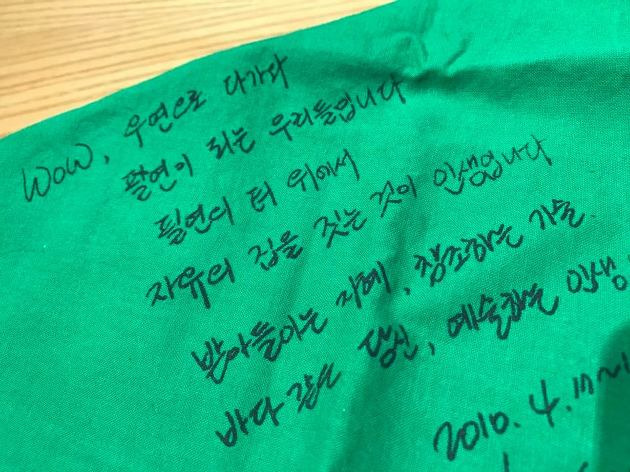 WOW, 우연으로 다가와
필연이 되는 우리들입니다
필연의 터 위에서
자유의 집을 짓는 것이 인생입니다
받아들이는 지혜, 창조하는 기술.
바다 같은 당신, 예술하는 인생
2010. 4. 17~1